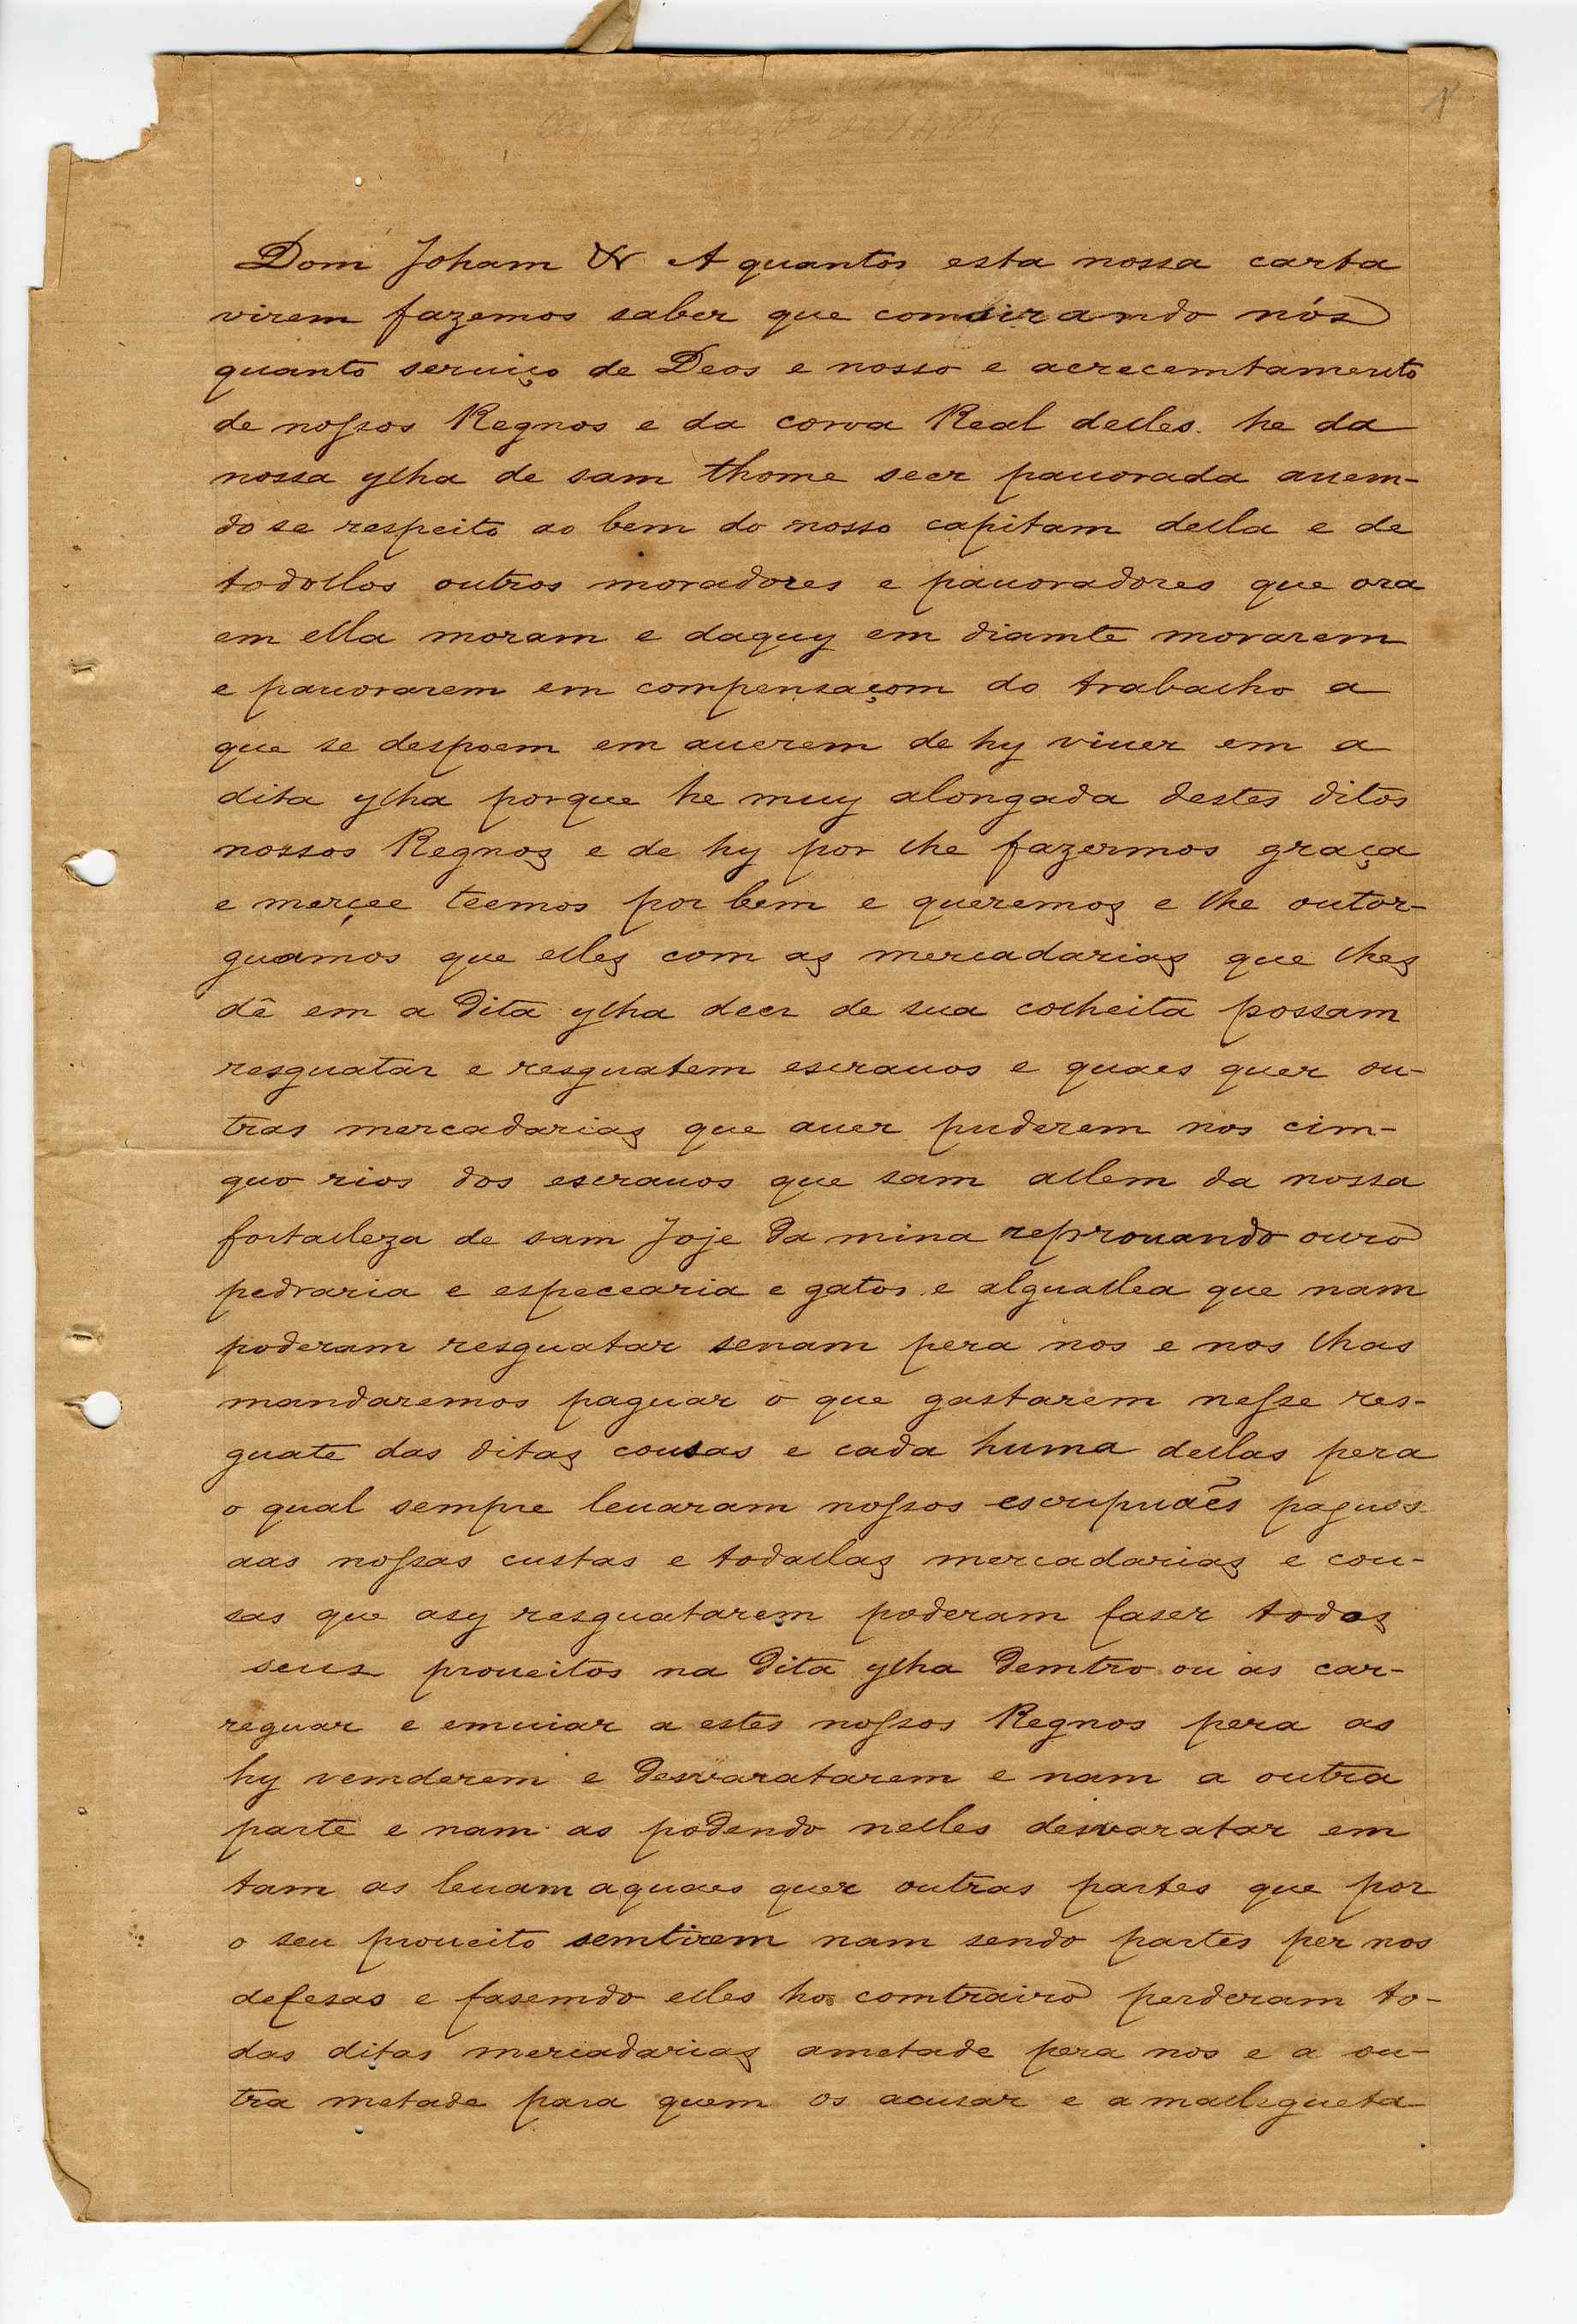 1
Dom Joham & A quantos esta nossa carta
virem fazemos saber que comsirando nós
quanto seruiço de Deos e nosso e acrecemtamento
de nossos Regnos e da coroa Real delles he da
nossa ylha de sam thome seer pauorada auem-
do se respeito ao bem do nosso capitam della e de
todollos outros moradores e pauoradores que ora
em ella moram e daquy em diamte morarem
e pauorarem em compensaçom do trabalho a
que se despoem em auerem de hy viuer em a
dita ylha porque he muy alongada destes ditos
nossos Regnos e de hy por lhe fazermos graça
e merçee teemos por bem e queremos e lhe outor-
guamos que elles com as mercadarias que lhes
dê em a dita ylha deer de sua colheita possam
resguatar e resguatem escrauos e quaes quer ou-
tras mercadarias que auer puderem nos cim-
quo rios dos escrauos que sam allem da nossa
fortalleza de sam Joje da mina reprouando ouro
pedraria e especearia e gatos e alguallea que nam
poderam resguatar senam pera nos e nos lhas
mandaremos paguar o que gastarem nesse res-
guate das ditas cousas e cada huma dellas pera
o qual sempre leuaram nossos escripuães paguos
aas nossas custas e todallas mercadarias e cou-
sas que asy resguatarem poderam faser todos
seus proueitos na dita ylha demtro ou as car-
reguar e emuiar a estes nossos Regnos pera as
hy vemderem e desvaratarem e nam a outra
parte e nam as podendo nelles desvaratar em
tam as leuam aquaes quer outras partes que por
o seu proueito semtirem nam sendo partes per nos
defesas e fasemdo elles ho comtrairo perderam to-
das ditas mercadarias ametade pera nos e a ou-
tra metade para quem os acusar e a mallegueta